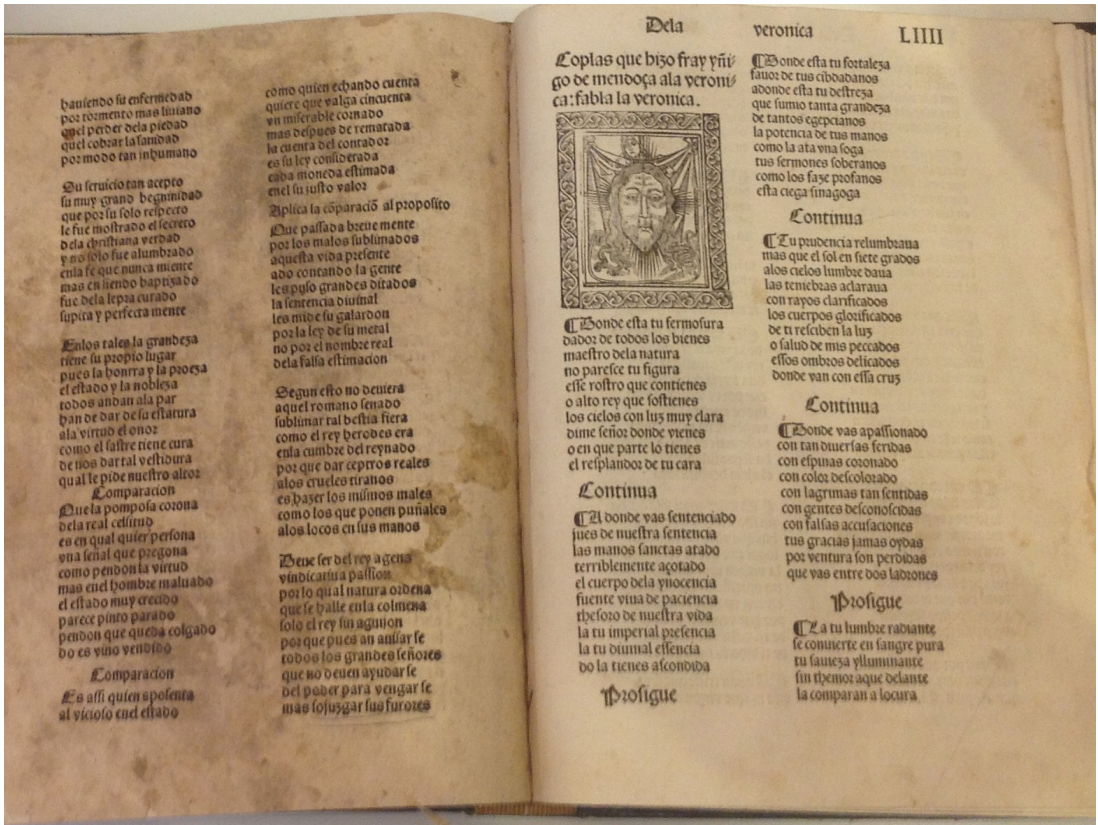 hauiendo su enfermedad
por tormento mas liuiano
quel perder dela piedad
quel cobrar la sanidad
por modo tan inhumano
Su seruicio tan acepto
su muy grand begninidad
que por su solo respecto
le fue mostrado el secreto
dela christiana verdad
y no solo fue alumbrado
enla fe que nunca miente
mas en siendo baptizado
fue dela lepra curado
supita y perfecta mente
Enlos tales la grandeza
tiene su propio lugar
pues la honrra y la proeza
el estado y la nobleza
todos andan ala par
han de dar de su estatura
ala virtud el onor
como el sastre tiene cura
de nos dar tal vestidura
qual le pide nuestro altor
Comparacion
Que la pomposa corona
dela real celsitud
es en qual quier persona
vna señal que pregona
como pendon la virtud
mas enel hombre maluado
el estado muy crecido
parece pinto parado
pendon que queda colgado
do es vino vendido
Comparacion
Es assi quien aposenta
al vicioso enel estado
como quien echando cuenta
quiere que valga cincuenta
vn miserable cornado
mas despues de rematada
la cuenta del contador
es su ley considerada
cada moneda estimada
enel su justo valor
Aplica la cōparaciō al proposito
Que passada breue mente
por los malos sublimados
aquesta vida presente
ado contando la gente
les puso grandes ditados
la sentencia diuinal
les mide su galardon
por la ley de su metal
no por el nombre real
dela falsa estimacion
Segun esto no deuiera
aquel romano senado
sublimar tal bestia fiera
como el rey herodes era
enla cumbre del reynado
por que dar ceptros reales
alos crueles tiranos
es hazer los mismos males
como los que ponen puñales
alos locos en sus manos
Deue ser del rey agena
vindicatiua passion
por lo qual natura ordena
que se halle enla colmena
solo el rey sin aguijon
por que pues an auisar se
todos los grandes señores
que no deuen ayudar se
del poder para vengar se
mas sojuzgar sus furores
Dela veronica LIIII
Coplas que hizo fray yñi-
go de mendoça ala veroni-
ca: fabla la veronica.
¶Donde esta tu fermosura
dador de todos los bienes
maestro dela natura
no paresce tu figura
esse rostro que contienes
o alto rey que sostienes
los cielos con luz muy clara
dime señor donde vienes
o en que parte lo tienes
el resplandor de tu cara
Continua
¶A donde vas sentenciado
jues de nuestra sentencia
las manos sanctas atado
terriblemente açotado
el cuerpo dela ynocencia
fuente viua de paciencia
thesoro de nuestra vida
la tu imperial presencia
la tu diuinal essencia
do la tienes ascondida
Prosigue
¶Donde esta tu fortaleza
fauor de tus cibdadanos
adonde esta tu destreza
que sumio tanta grandeza
de tantos egepcianos
la potencia de tus manos
como la ata vna soga
tus sermones soberanos
como los faze profanos
esta ciega sinagoga
Continua
¶Tu prudencia relumbraua
mas que el sol en siete grados
alos cielos lumbre daua
las teniebras aclaraua
con rayos clarificados
los cuerpos glorificados
de ti resciben la luz
o salud de mis peccados
essos ombros delicados
donde van con essa cruz
Continua
¶Donde vas apassionado
con tan diuersas feridas
con espinas coronado
con color descolorado
con lagrimas tan sentidas
con gentes desconoscidas
con falsas accusaciones
tus gracias jamas oydas
por ventura son perdidas
que vas entre dos ladrones
Prosigue
¶La tu lumbre radiante
se conuierte en sangre pura
tu sauieza ylluminante
sin themor aque delante
la comparan a locura